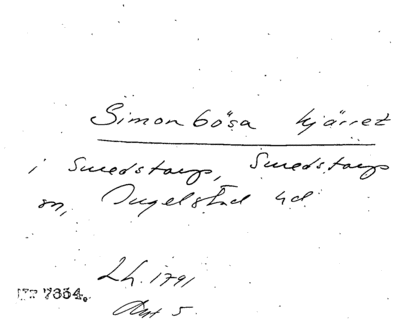 Simonbösa kjärret
i Smedstorp, Smedstorp
sn, Ingelstad hd
Lh. 1791
Akt 5
7334.